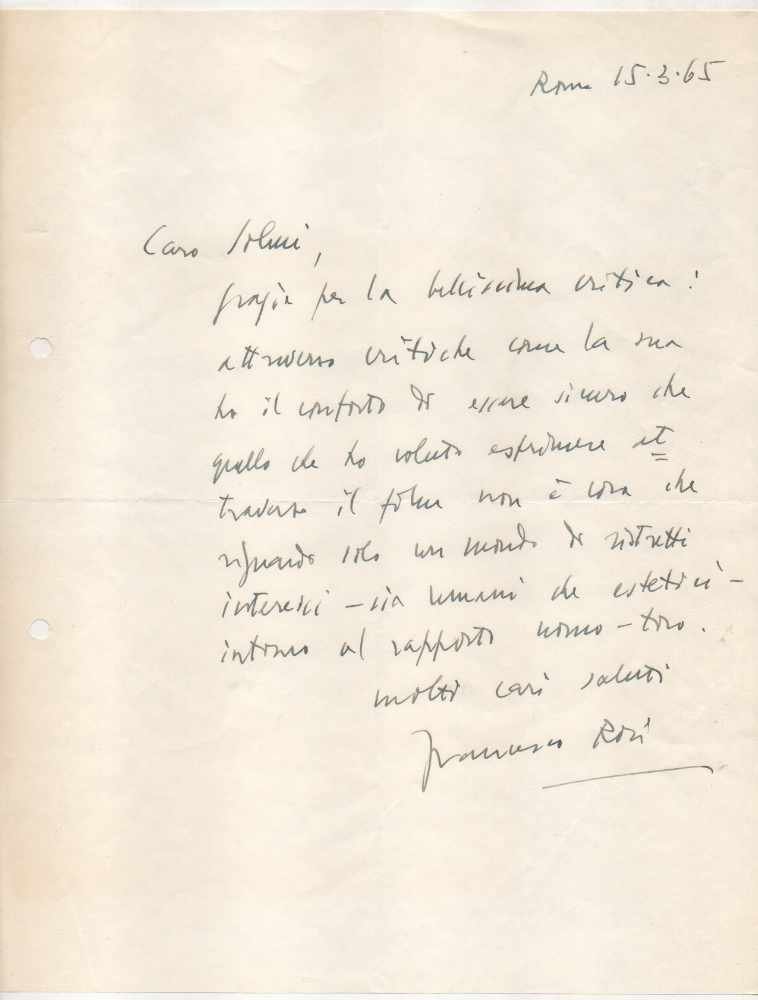 Roma 15.3.65
Caro Solmi,
grazie per la bellissima critica!
attraverso critiche come la sua
ho il conforto di essere sicuro che
quello che ho voluto esprimere at
traverso il film non è cosa che
riguarda solo un mondo di ristretti
interessi – sia umani che estetici –
intorno al rapporto uomo – toro.
molti cari saluti
Francesco Rosi